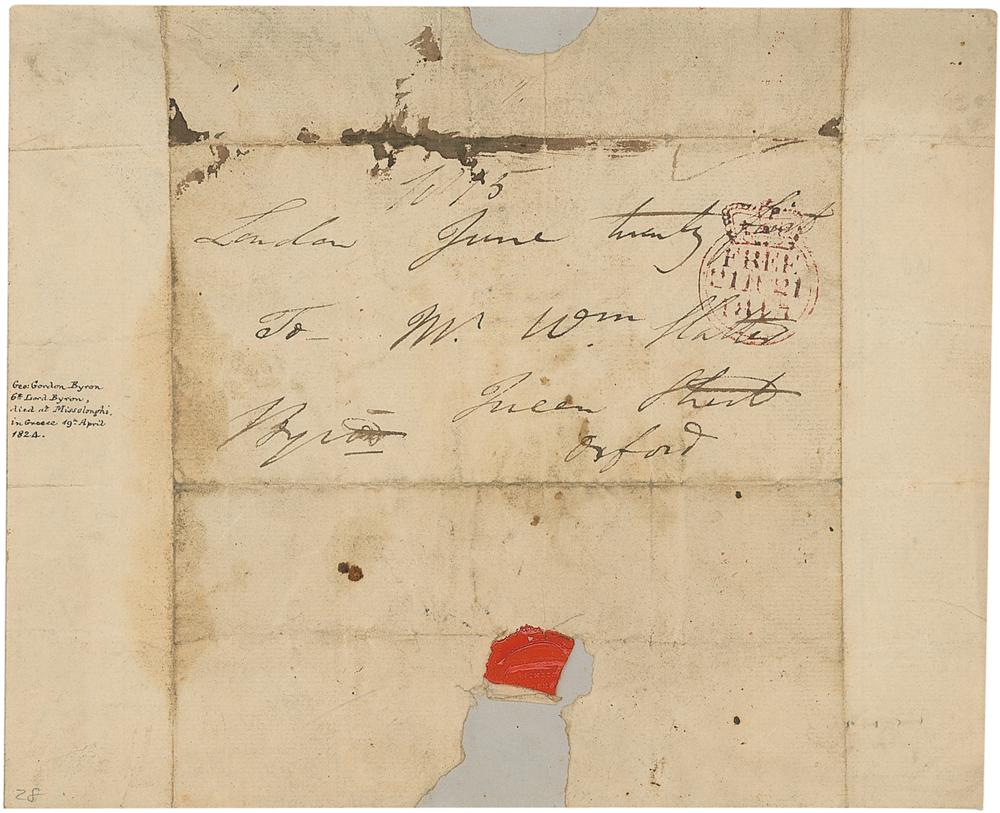 London June twenty first
To Mr. Wm Slatter
Queen Street
Byron
Oxford
FREE
21 JU 21
Geo: Gordon Byron
6th Lord Byron,
died at Missolonghi,
in Greece 19th April
1824.
28